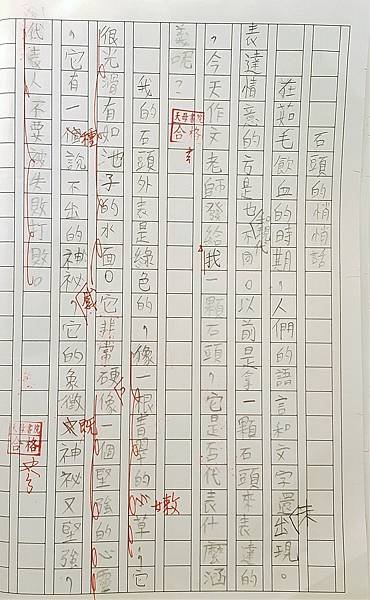 石頭的悄悄話
在茹毛飲血的時期，人們的語言和文字最出現。
表達情意的方是也不同。以前是拿一顆石頭來表達的
，今天作文老師發給我一顆石頭，它是否代表什麼涵
義呢？
天母書院
合格
我的石頭外表是綠色的，像一根青翠的草，它
嫩
很光滑有如池子的水面。它非常硬像一個堅強的心靈
，它有一個說不出的神祕，它的象徵神祕又堅強，
種
感
既
代表人不要被失敗打敗。
天母書院
合格